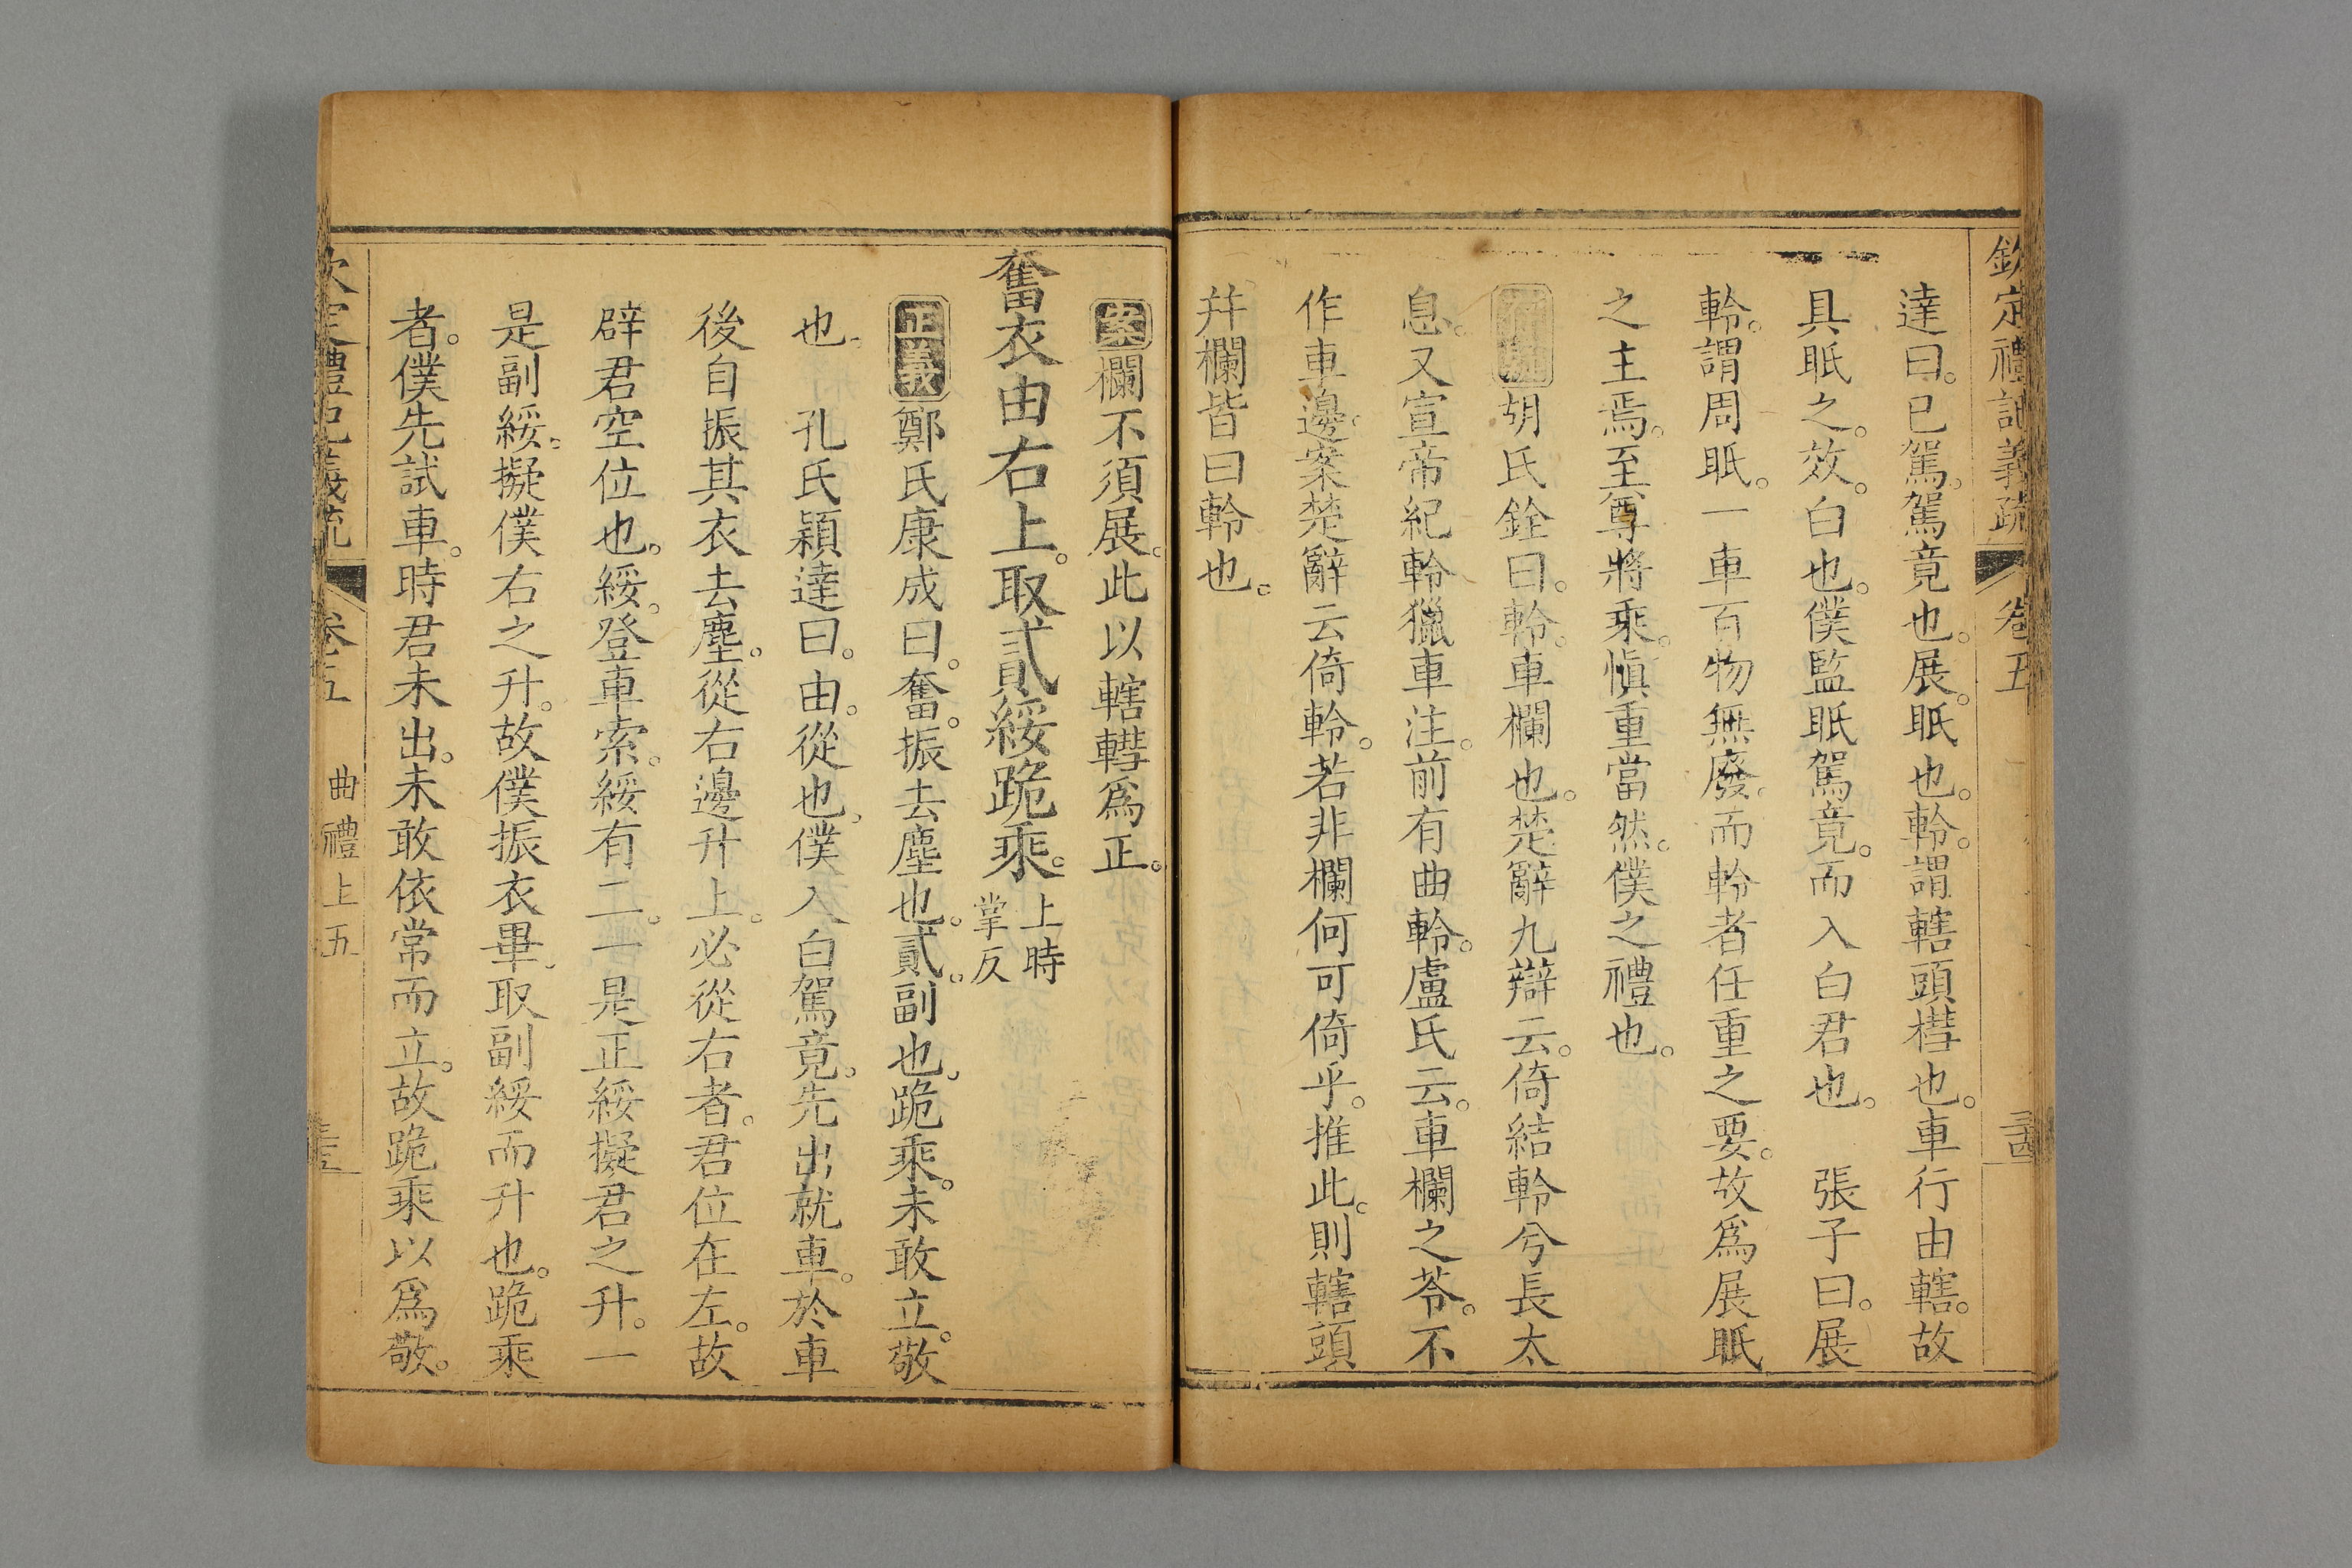 欽定禮記義疏 卷五
達曰。已駕。駕竟也。展。眡也。軨。謂轄頭轊也。車行由轄。故
具眡之。效。白也。僕監眡駕竟。而入白君也。 張子曰。展
軨。謂周眡。一車百物無廢。而軨者任重之要。故爲展眡
之主焉。至尊將乘。慎重當然。僕之禮也。
胡氏銓曰。軨。車欄也。楚辭九辯云。倚結軨兮長太
息。又宣帝紀軨獵車注。前有曲軨。盧氏云。車欄之苓。不
作車邊。案楚辭云倚軨。若非欄何可倚乎。推此。則轄頭
幷欄皆曰軨也。
案欄不須展。此以轄轊爲正。
奮衣由右上。取貳綏跪乘。上時
掌反
正義鄭氏康成曰。奮。振去塵也。貳。副也。跪乘。未敢立。敬
也。 孔氏穎達曰。由。從也。僕入白駕竟。先出就車。於車
後自振其衣去塵。從右邊升上。必從右者。君位在左。故
辟君空位也。綏。登車索。綏有二。一是正綏擬君之升。一
是副綏。擬僕右之升。故僕振衣畢。取副綏而升也。跪乘
者。僕先試車。時君未出。未敢依常而立。故跪乘以爲敬。
欽定禮記義疏 卷五 曲禮上五